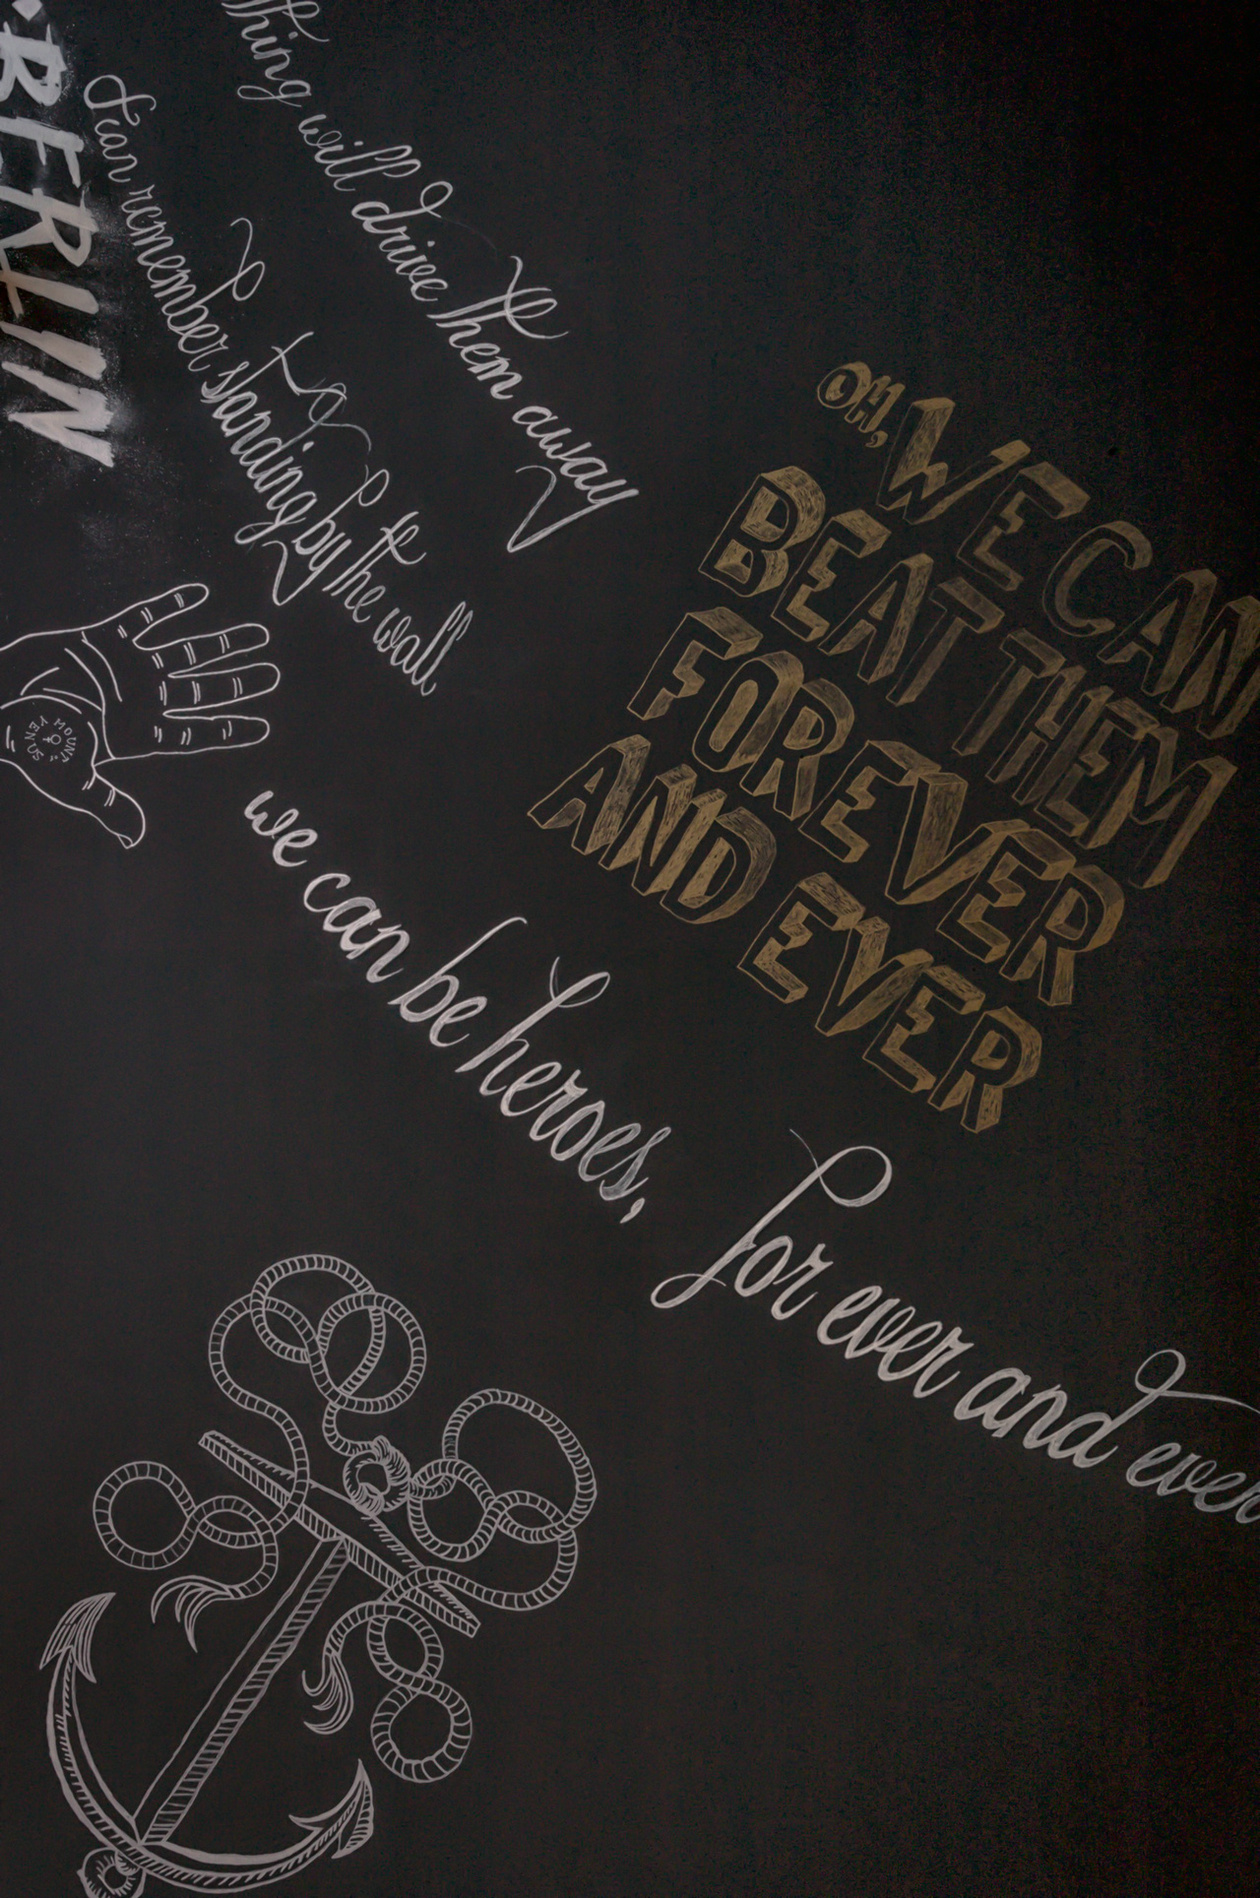 BERLIN
thing will drive them away
I can remember standing by the wall
MOUNT
VENUS
OH, WE CAN
BEAT THEM
FOREVER
AND EVER
we can be heroes,
for ever and ever